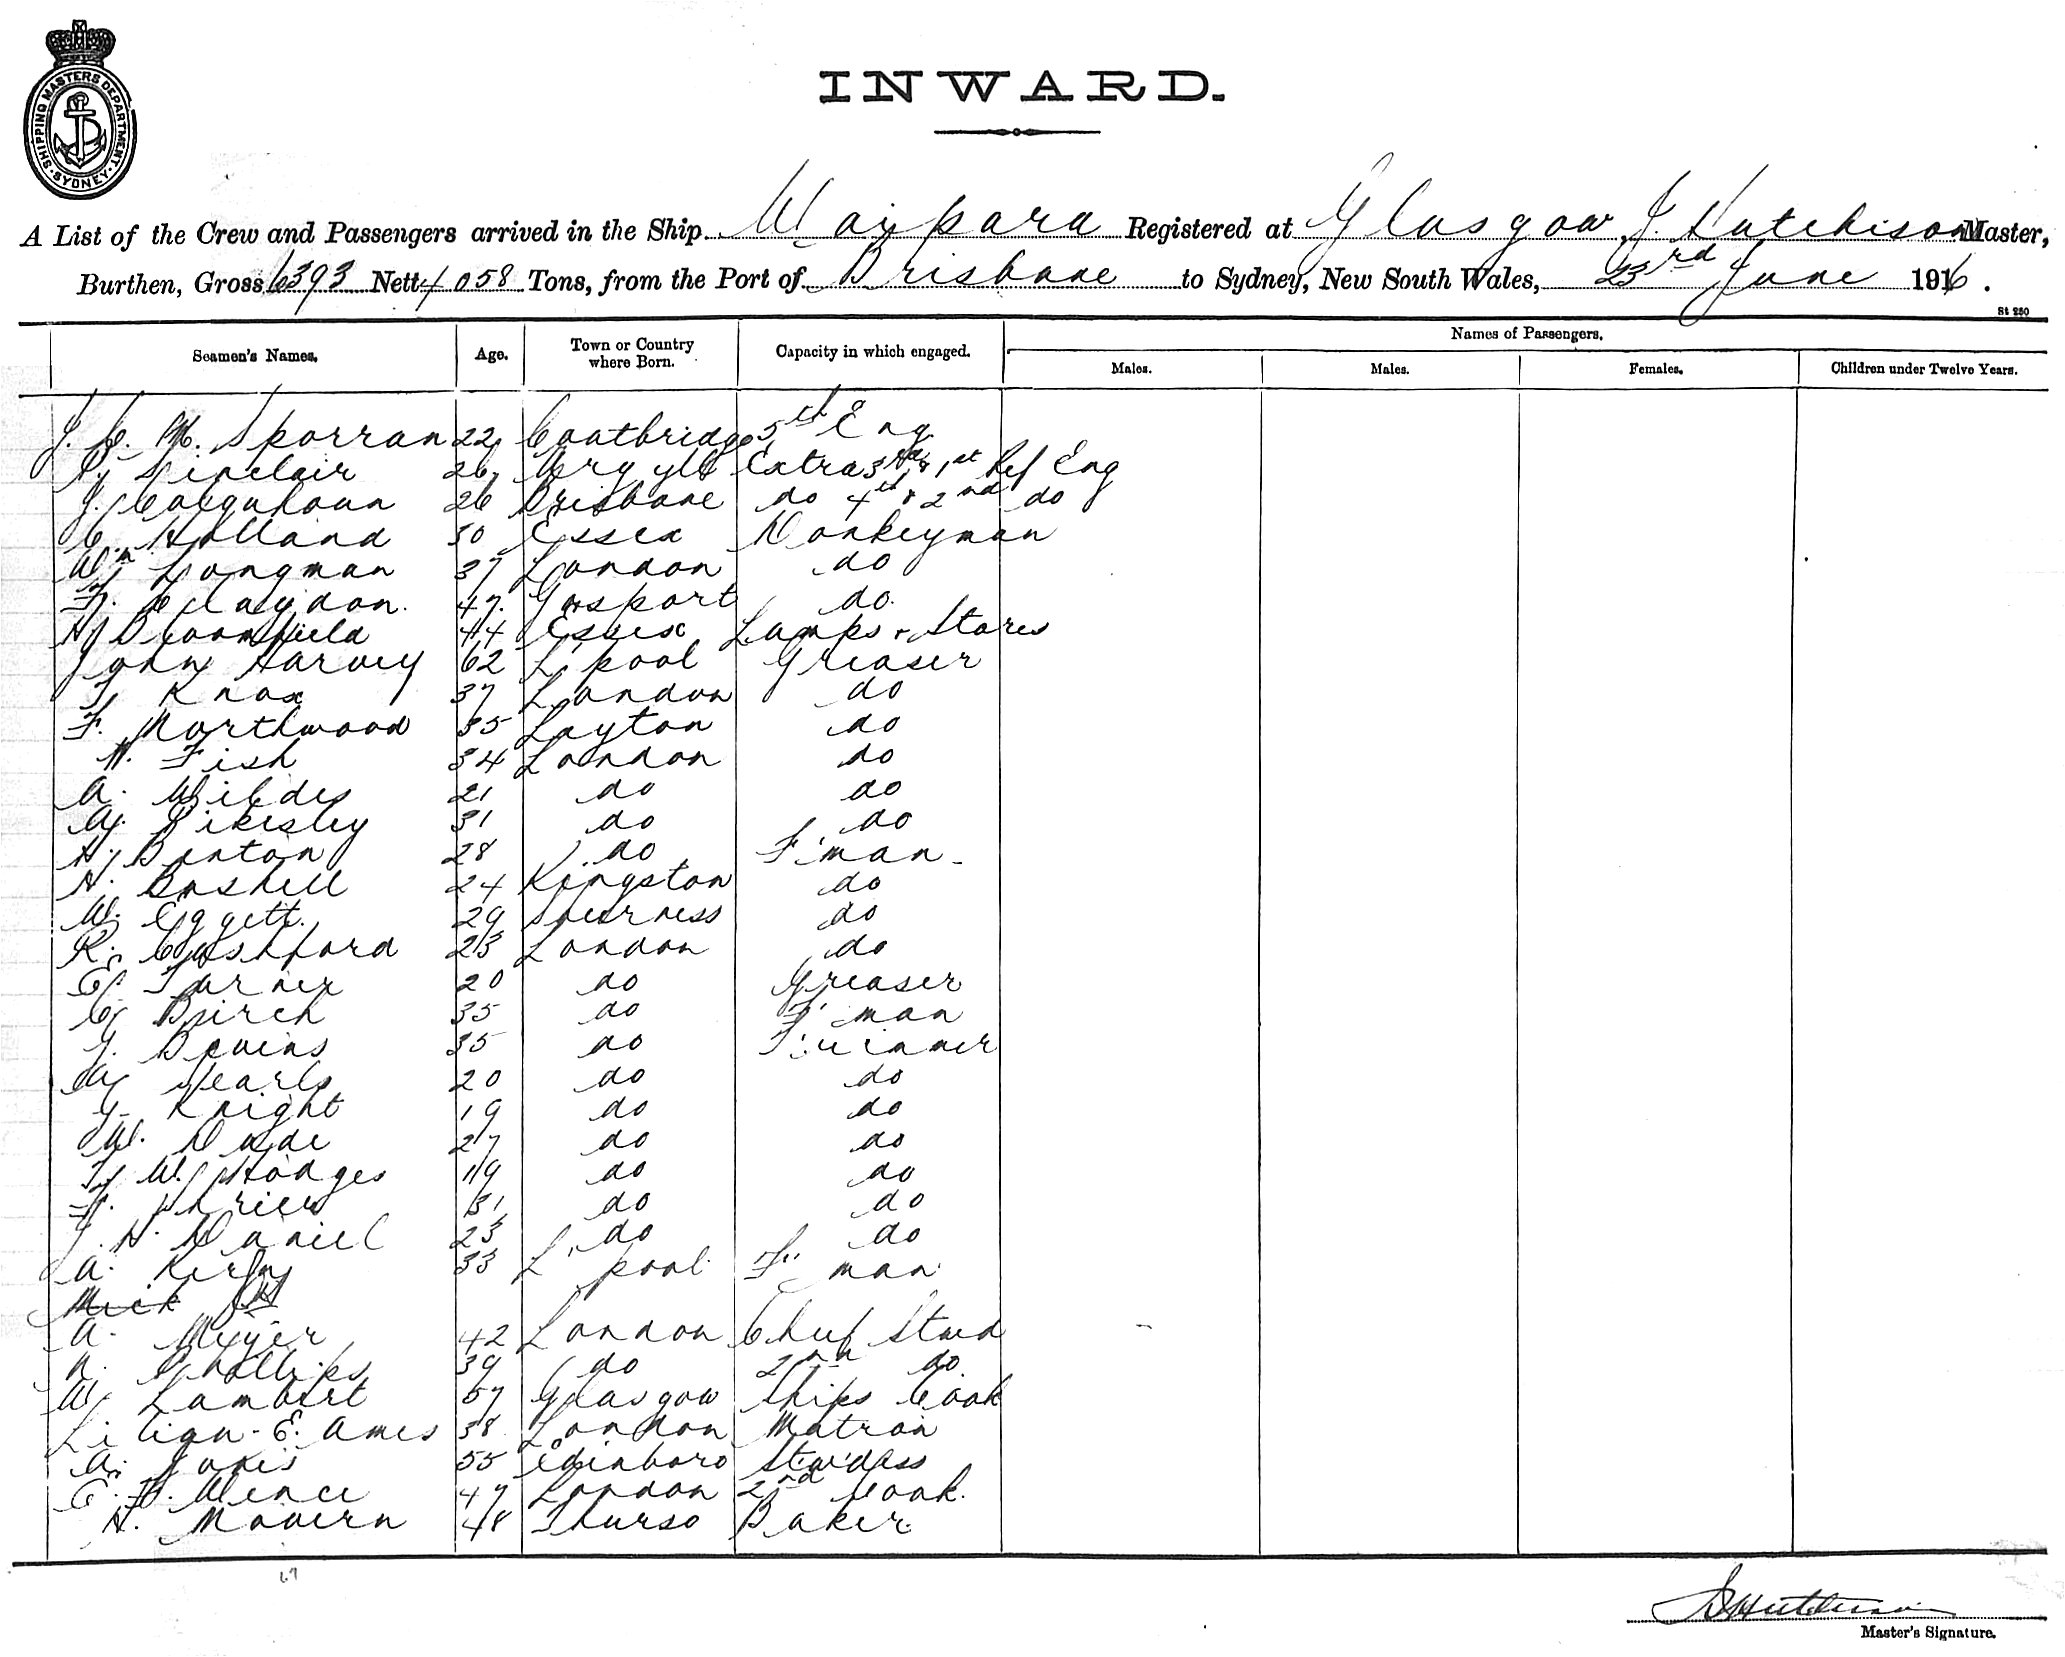 SHIPPING MASTERS DEPARTMENT. SYDNEY.
INWARD.
A List of the Crew and Passengers arrived in the Ship Waipara Registered at Glasgow J. Hutchison Master,
Burthen, Gross 6393 Nett 4058 Tons, from the Port of Brisbane to Sydney, New South Wales, 23rd June 1916.
St 250
Seamen's Names. Age. Town or Country where Born. Capacity in which engaged. Names of Passengers.
Males. Males. Females. Children under Twelve Years.
Sporran 22 Coatbridge 5th Eng
Sinclair 26 Argyle Extra 3rd & 1st Ref Eng
J. Colquhoun 26 Brisbane do 4th & 2nd do
C. Holland 30 Essex Donkeyman
Wm Longman 37 London do
F. Claydon. 47. Gosport do.
H Bloomfield 44 Essex Lamps & Stores
John Harvey 62 L'pool Greaser
Knox 37 London do
F. Northwood 35 Layton do
W. Fish 34 London do
A. Wildes 21 do do
31 do do
H Benton 28 do F'man
H. Bushell 24 Kingston do
W. Eggett. 29 Sheerness do
R. Cushford 23 London do
E Turner 20 do Greaser
C Birch 35 do F'man
Bevins 35 do T'rimmer
20 do do
G. Knight 19 do do
W. Dade 27 do do
W Hodges 19 do do
31 do do
J. H. Daniel 23 do do
A. Kirby 33 L'pool F'man
Mick
A. Meyer 42 London Chief Stwd
Phillips 39 do 2nd do
W Lambert 57 Glasgow Ships Cook
Lilian E. Ames 38 London Matron
A. Jones 55 Edinboro Stwd'ss
E. 47 London 2nd Cook.
H. Mowern 48 Thurso Baker.
Master's Signature.